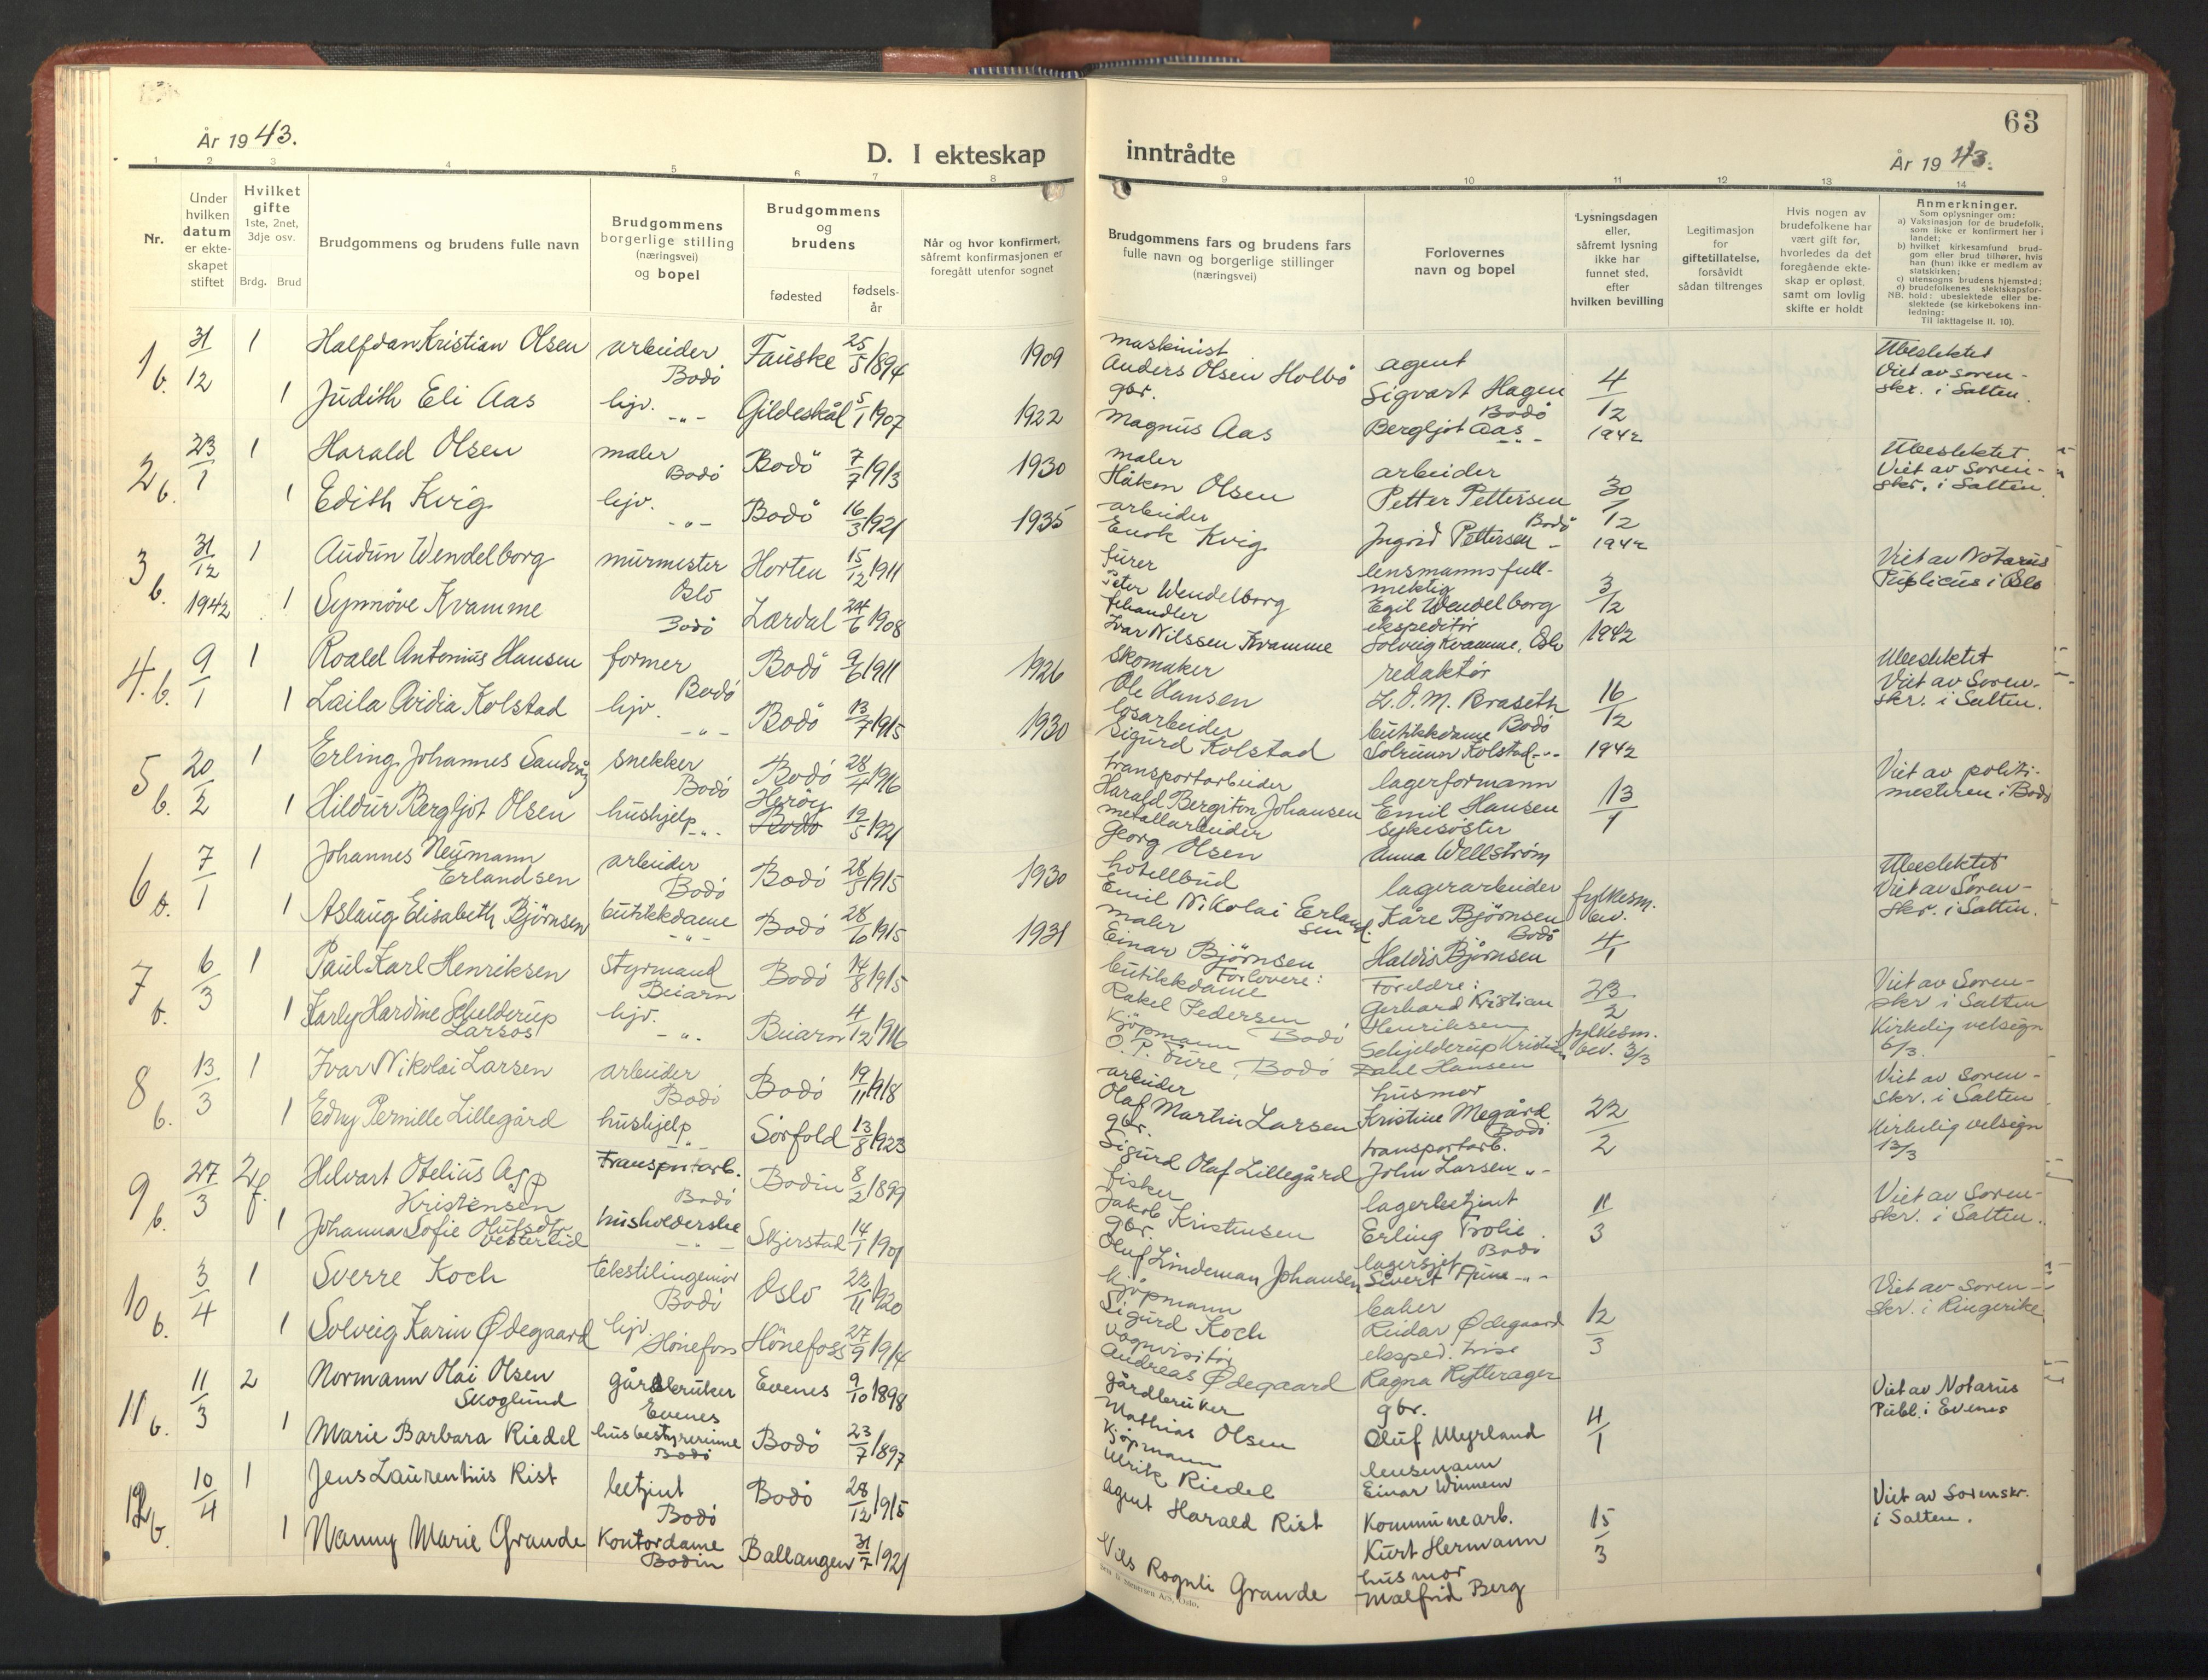 63
År 1943.
D. I ekteskap
inntrådte
År 1943.
1 2 3 4 5 6 7 8 9 10 11 12 13 14
Nr.
Under hvilken datum er ekteskapet stiftet
Hvilket gifte 1ste, 2net, 3dje osv.
Brdg. Brud
Brudgommens og brudens fulle navn
Brudgommens borgerlige stilling (næringsvei) og bopel
Brudgommens og brudens
fødested
fødselsår
Når og hvor konfirmert, såfremt konfirmasjonen er foregått utenfor sognet
Brudgommens fars og brudens fars fulle navn og borgerlige stillinger (næringsvei)
Forlovernes navn og bopel
Lysningsdagen eller, såfremt lysning ikke har funnet sted, efter hvilken bevilling
Legitimasjon for giftetillatelse, forsåvidt sådan tiltrenges
Hvis nogen av brudefolkene har vært gift før, hvorledes da det foregående ekteskap er opløst, samt om lovlig skifte er holdt
Anmerkninger.
Som oplysninger om:
a) Vaksinasjon for de brudefolk, som ikke er konfirmert her i landet;
b) hvilket kirkesamfund brudgom eller brud tilhører, hvis han (hun) ikke er medlem av statskirken;
c) utensogns brudens hjemsted;
d) brudefolkenes slektskapsforhold: ubeslektede eller beslektede (se kirkebokens innledning:
NB. Til iakttagelse II. 10).
1 b. 31/12 1 Halfdan Kristian Olsen arbeider Bodö Fauske 25/5 1894 1909 maskinist Anders Olsen Holbö agent Sigvart Hagen Bodö 4/12 1942 Ubeslektet Viet av sorenskr. i Salten.
1 Judith Eli Aas hjv. -"- Gildeskål 5/1 1907 1922 gbr. Magnus Aas Bergljot Aas -"-
2 b. 23/1 1 Harald Olsen maler Bodö Bodö 7/7 1913 1930 maler Håkon Olsen arbeider Petter Pettersen Bodö 30/12 1942 Ubeslektet. Viet av Sorenskr. i Salten.
1 Edith Kvig hjv. -"- Bodö 16/3 1921 1935 arbeider Enok Kvig Ingrid Pettersen -
3 b. 31/12 1942 1 Audun Wendelborg murmester Oslo Horten 15/12 1911 furer Peter Wendelborg lensmannsfullmektig Egil Wendelborg 3/12 1942 Viet av Notarius Publicus i Oslo
1 Synnöve Kvamme Bodö Lærdal 24/6 1908 fehandler Ivar Nilssen Kvamme ekspeditör Solveig Kvamme, Oslo
4. b. 9/1 1 Roald Antonius Hansen former Bodö Bodö 9/6 1911 1926 skomaker Ole Hansen redaktör L.O.M. Braseth Bodö 16/12 1942 Ubeslektet Viet av Sorenskr. i Salten.
1 Laila Ovidia Kolstad hjv. -"- Bodö 13/7 1915 1930 losarbeider Sigurd Kolstad butikkdame Solrunn Kolstad -"-
5 b. 20/2 1 Erling Johannes Sandvåg snekker Bodö Bodö 28/4 1916 transportarbeider Harald Bergiton Johansen lagerformann Emil Hansen 13/1 Viet av politimesteren i Bodö
1 Hildur Bergljot Olsen hushjelp -"- Heröy Bodö 19/5 1921 metallarbeider Georg Olsen sykesöster Anna Wellström
6 b. 7/1 1 Johannes Neumann Erlandsen arbeider Bodö Bodö 28/5 1915 1930 hotellbud Emil Nikolai Erlandsen lagerarbeider Kåre Björnsen Bodö fylkesm. bev. 4/1 Ubeslektet Viet av Sorenskr. i Salten.
1 Aslaug Elisabeth Björnsen butikkdame -"- Bodö 28/10 1915 1931 maler Einar Björnsen Haldis Björnsen
7 b. 6/3 1 Paul Karl Henriksen styrmand Beiarn Bodö 14/8 1915 Forlovere: butikkdame Rakel Pedersen Bodö Foreldre: Gerhard Kristian Henriksen 23/2 fylkesm. bev. 3/3 Viet av Sorenskr i Salten Kirkelig velsign 6/3.
1 Karly Hardine Schelderup Larsos hjv. -"- Beiarn 4/12 1916 Kjöpmann O.P. Fure, Bodö Schjelderup Kristian Dahl Hansen
8 b. 13/3 1 Ivar Nikolai Larsen arbeider Bodö Bodö 19/11 1918 arbeider Olaf Martin Larsen husmor Kristine Megård Bodö 22/2 Viet av Sorenskr. i Salten Kirkelig velsign 13/3
1 Edny Pernille Lillegård hushjelp -"- Sörfold 13/8 1923 gbr. Sigurd Olaf Lillegård transportarb. John Larsen -"-
9 b. 27/3 2 f. Helvart Otelius Asp Kristensen Transportarb. Bodö Bodin 8/2 1899 fisker Jakob Kristensen lagerbetjent Erling Trolie Bodö 11/3 Viet av Sorenskr. i Salten.
1 Johanna Sofie Olufsdtr. Vesterlid husholderske -"- Skjerstad 14/1 1901 gbr. Oluf Lindeman Johansen lagersjef Sivert Fjune -"-
10 b. 3/4 1 Sverre Koch tekstilingeniör Bodö Oslo 22/11 1920 kjöpmann Sigurd Koch baker Reidar Ødegaard 12/3 Viet av sorenskr. i Ringerike
1 Solveig Karin Ødegaard hjv. Hönefoss Hönefoss 27/9 1914 vognvisitör Andreas Ødegaard eksped. trise Ragna Rytterager
11 b. 11/3 2 Normann Olai Olsen Skoglund gårdbruker Evenes Evenes 9/10 1898 gårdbruker Mathias Olsen gbr. Oluf Myrland 4/1 Viet av Notarius Publ. i Evenes
1 Marie Barbara Riedel husbestyrerinne Bodö Bodö 23/7 1897 kjöpmann Ulrik Riedel lensmann Einar Winnem
12 b. 10/4 1 Jens Laurentius Rist betjent Bodö Bodö 28/12 1915 agent Harald Rist Kommunearb. Kurt Hermann 15/3 Viet av Sorenskr. i Salten.
1 Nanny Marie Grande Kontordame Bodin Ballangen 31/7 1921 Nils Rognli Grande husmor Malfrid Berg